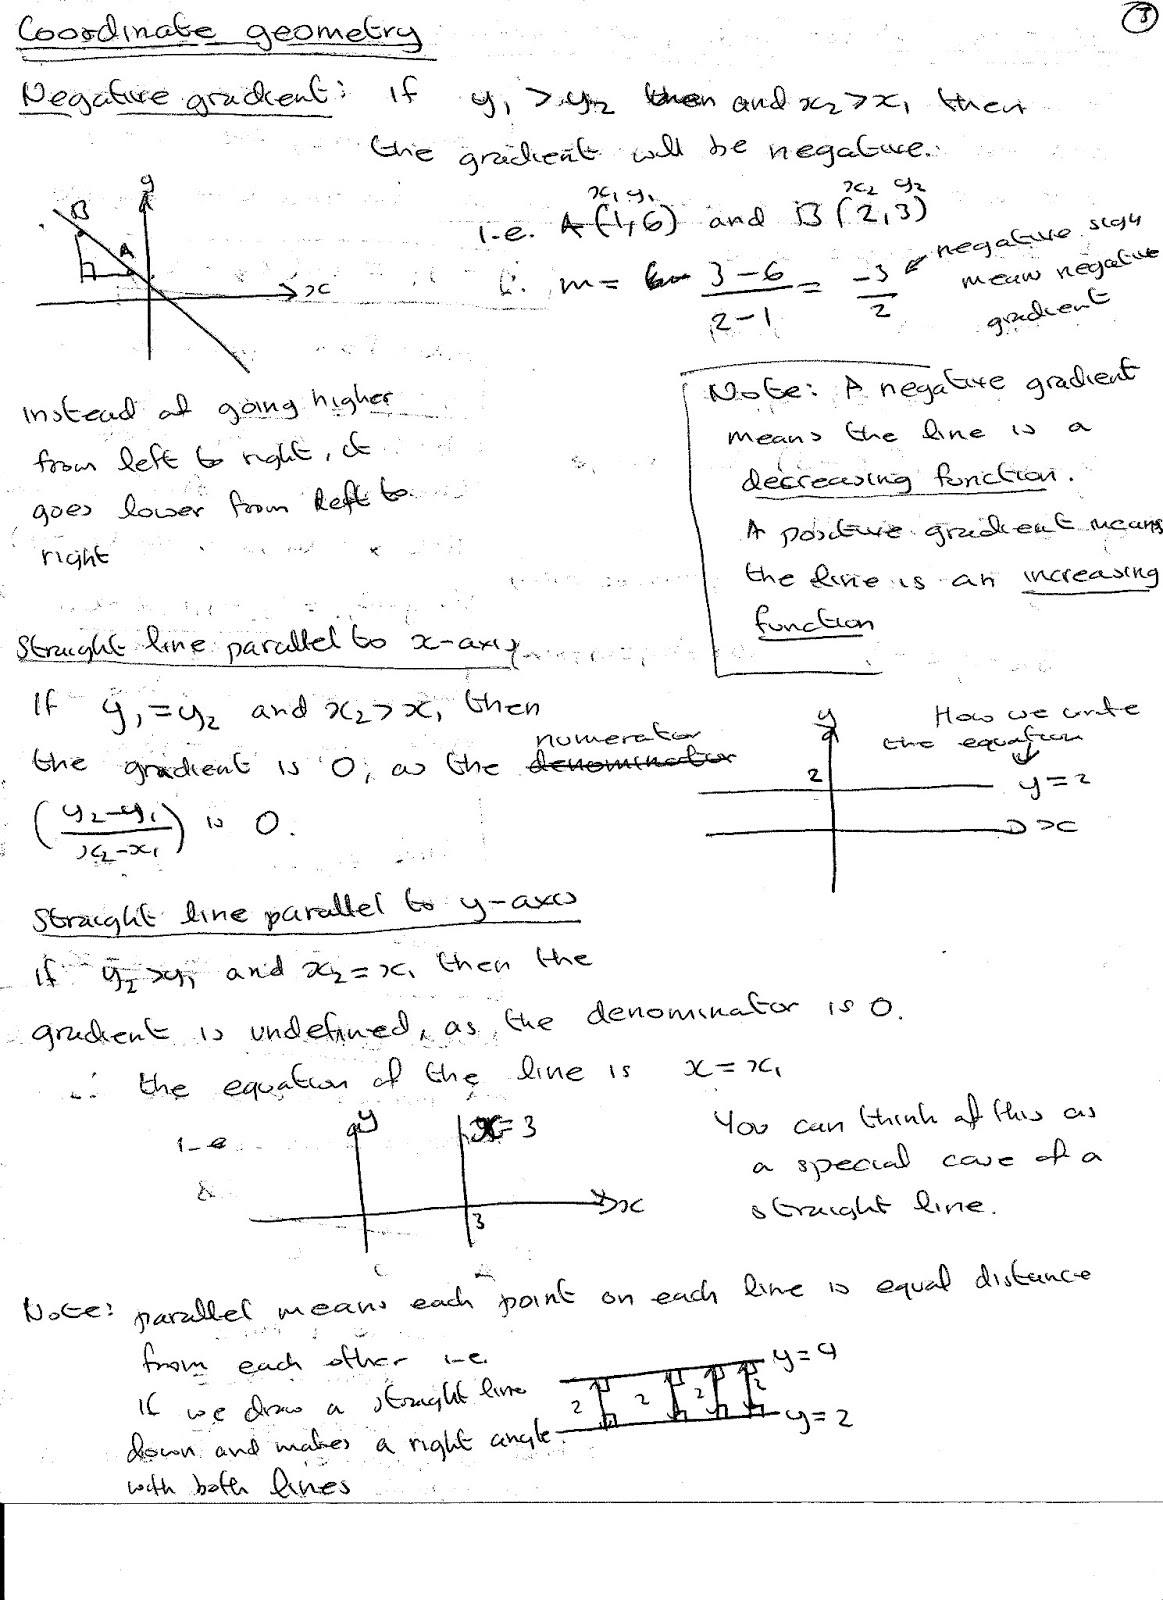 3
Coordinate geometry
Negative gradient: If y₁ > y₂ then and x₂ > x₁ then
the gradient will be negative.
y
B
A
x
x₁ y₁ x₂ y₂
i.e. A(1,6) and B(2,3)
∴ m = 6- 3-6/2-1 = -3/2
negative sign
mean negative
gradient
Instead of going higher
from left to right, it
goes lower from left to
right
Note: A negative gradient
means the line is a
decreasing function.
A positive gradient means
the line is an increasing
function
Straight line parallel to x-axis
If y₁ = y₂ and x₂ > x₁ then
numerator
the gradient is 0, as the denominator
(y₂-y₁/x₂-x₁) is 0.
y
How we write
the equation
2
y=2
x
Straight line parallel to y-axis
if y₂ > y₁ and x₂ = x₁ then the
gradient is undefined, as the denominator is 0.
∴ the equation of the line is x = x₁
i-e
y
x=3
x
3
You can think of this as
a special case of a
straight line.
Note: parallel means each point on each line is equal distance
from each other i-e.
If we draw a straight line
down and makes a right angle
with both lines
y=4
2 2 2 2
y=2